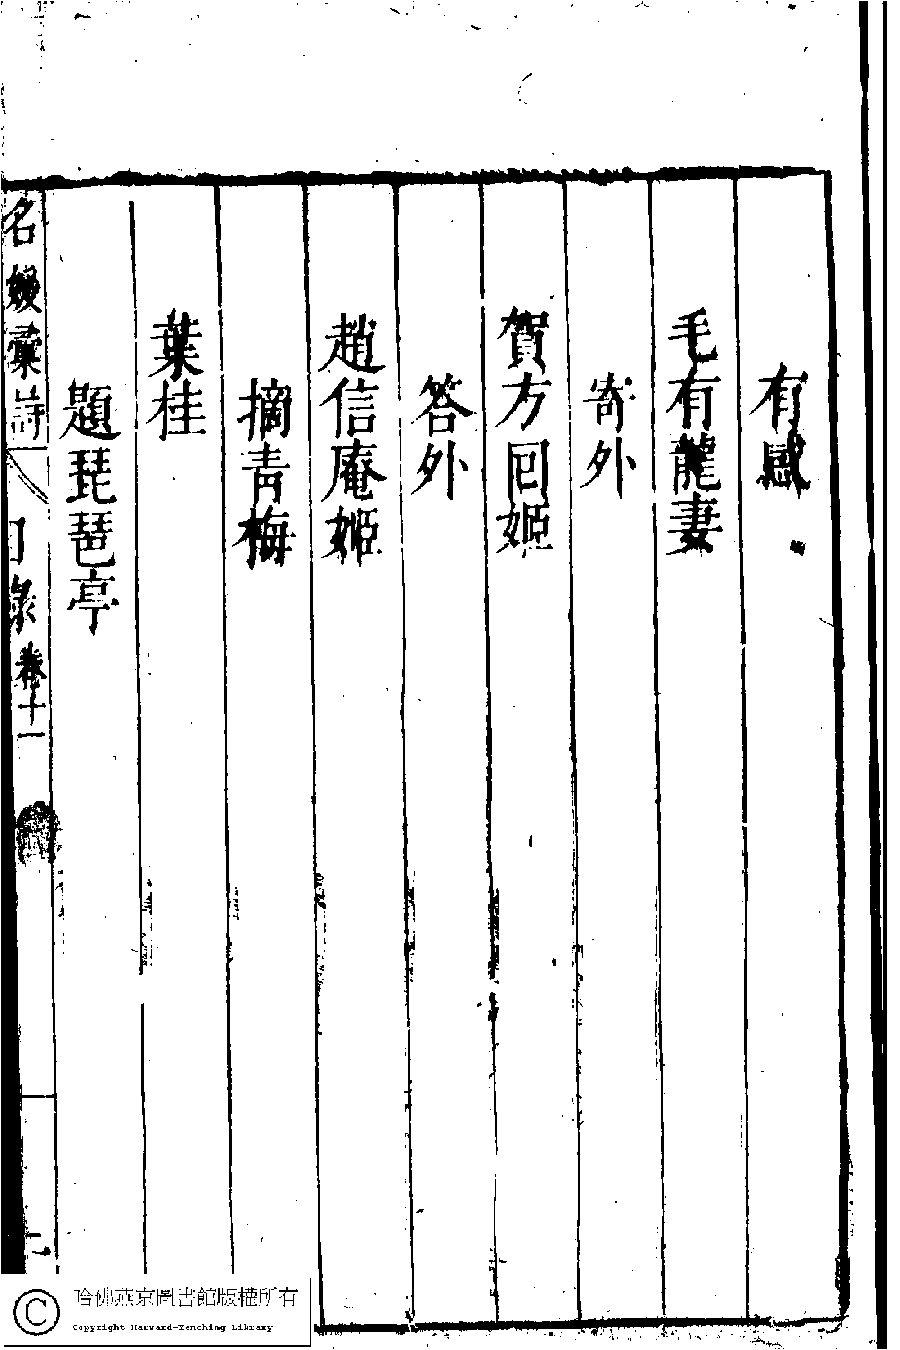 有感
毛有龍妻
寄外
賀方回姬
答外
趙信庵姬
摘青梅
葉桂
題琵琶亭
名媛彙詩
目錄卷十一
哈佛燕京圖書館版權所有
Copyright Harvard-Yenching Library